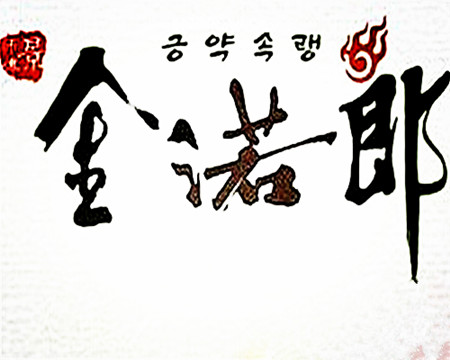 긍약속랭
金诺郎